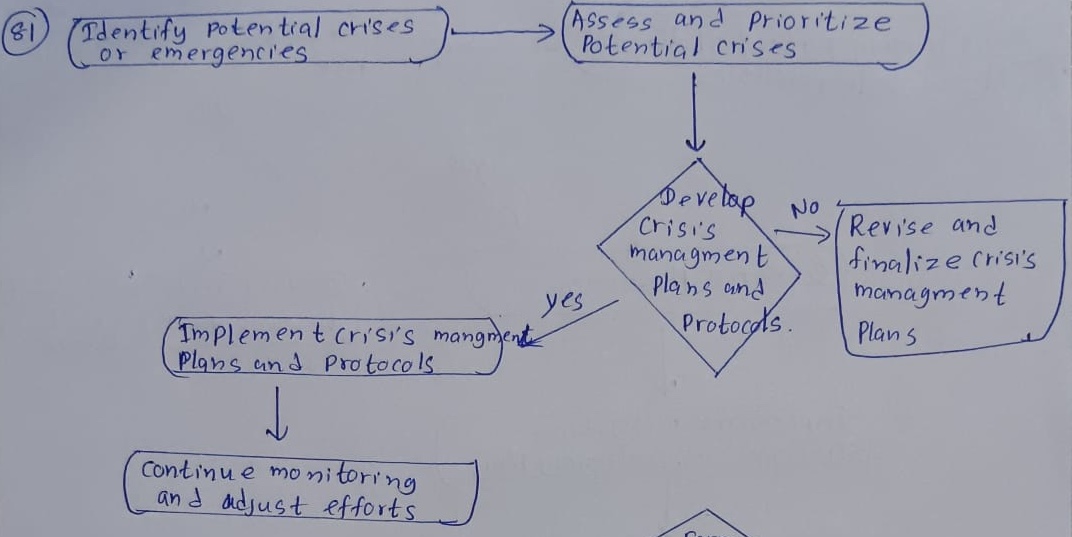 81
Identify potential crises
or emergencies
Assess and Prioritize
Potential crises
Develop
Crisis
managment
Plans and
Protocols.
No
Revise and
finalize Crisis
managment
Plans
yes
Implement Crisis mangment
Plans and Protocols
Continue monitoring
and adjust efforts